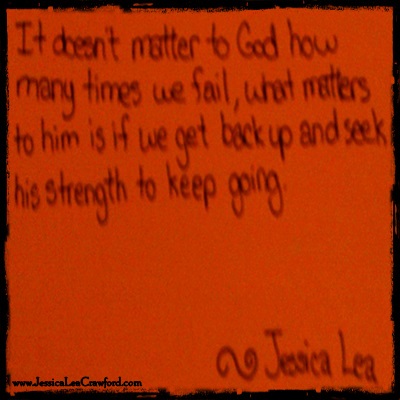 It doesn't matter to God how
many times we fail, what matters
to him is if we get back up and seek
his strength to keep going.
Jessica Lea
www.JessicaLeaCrawford.com